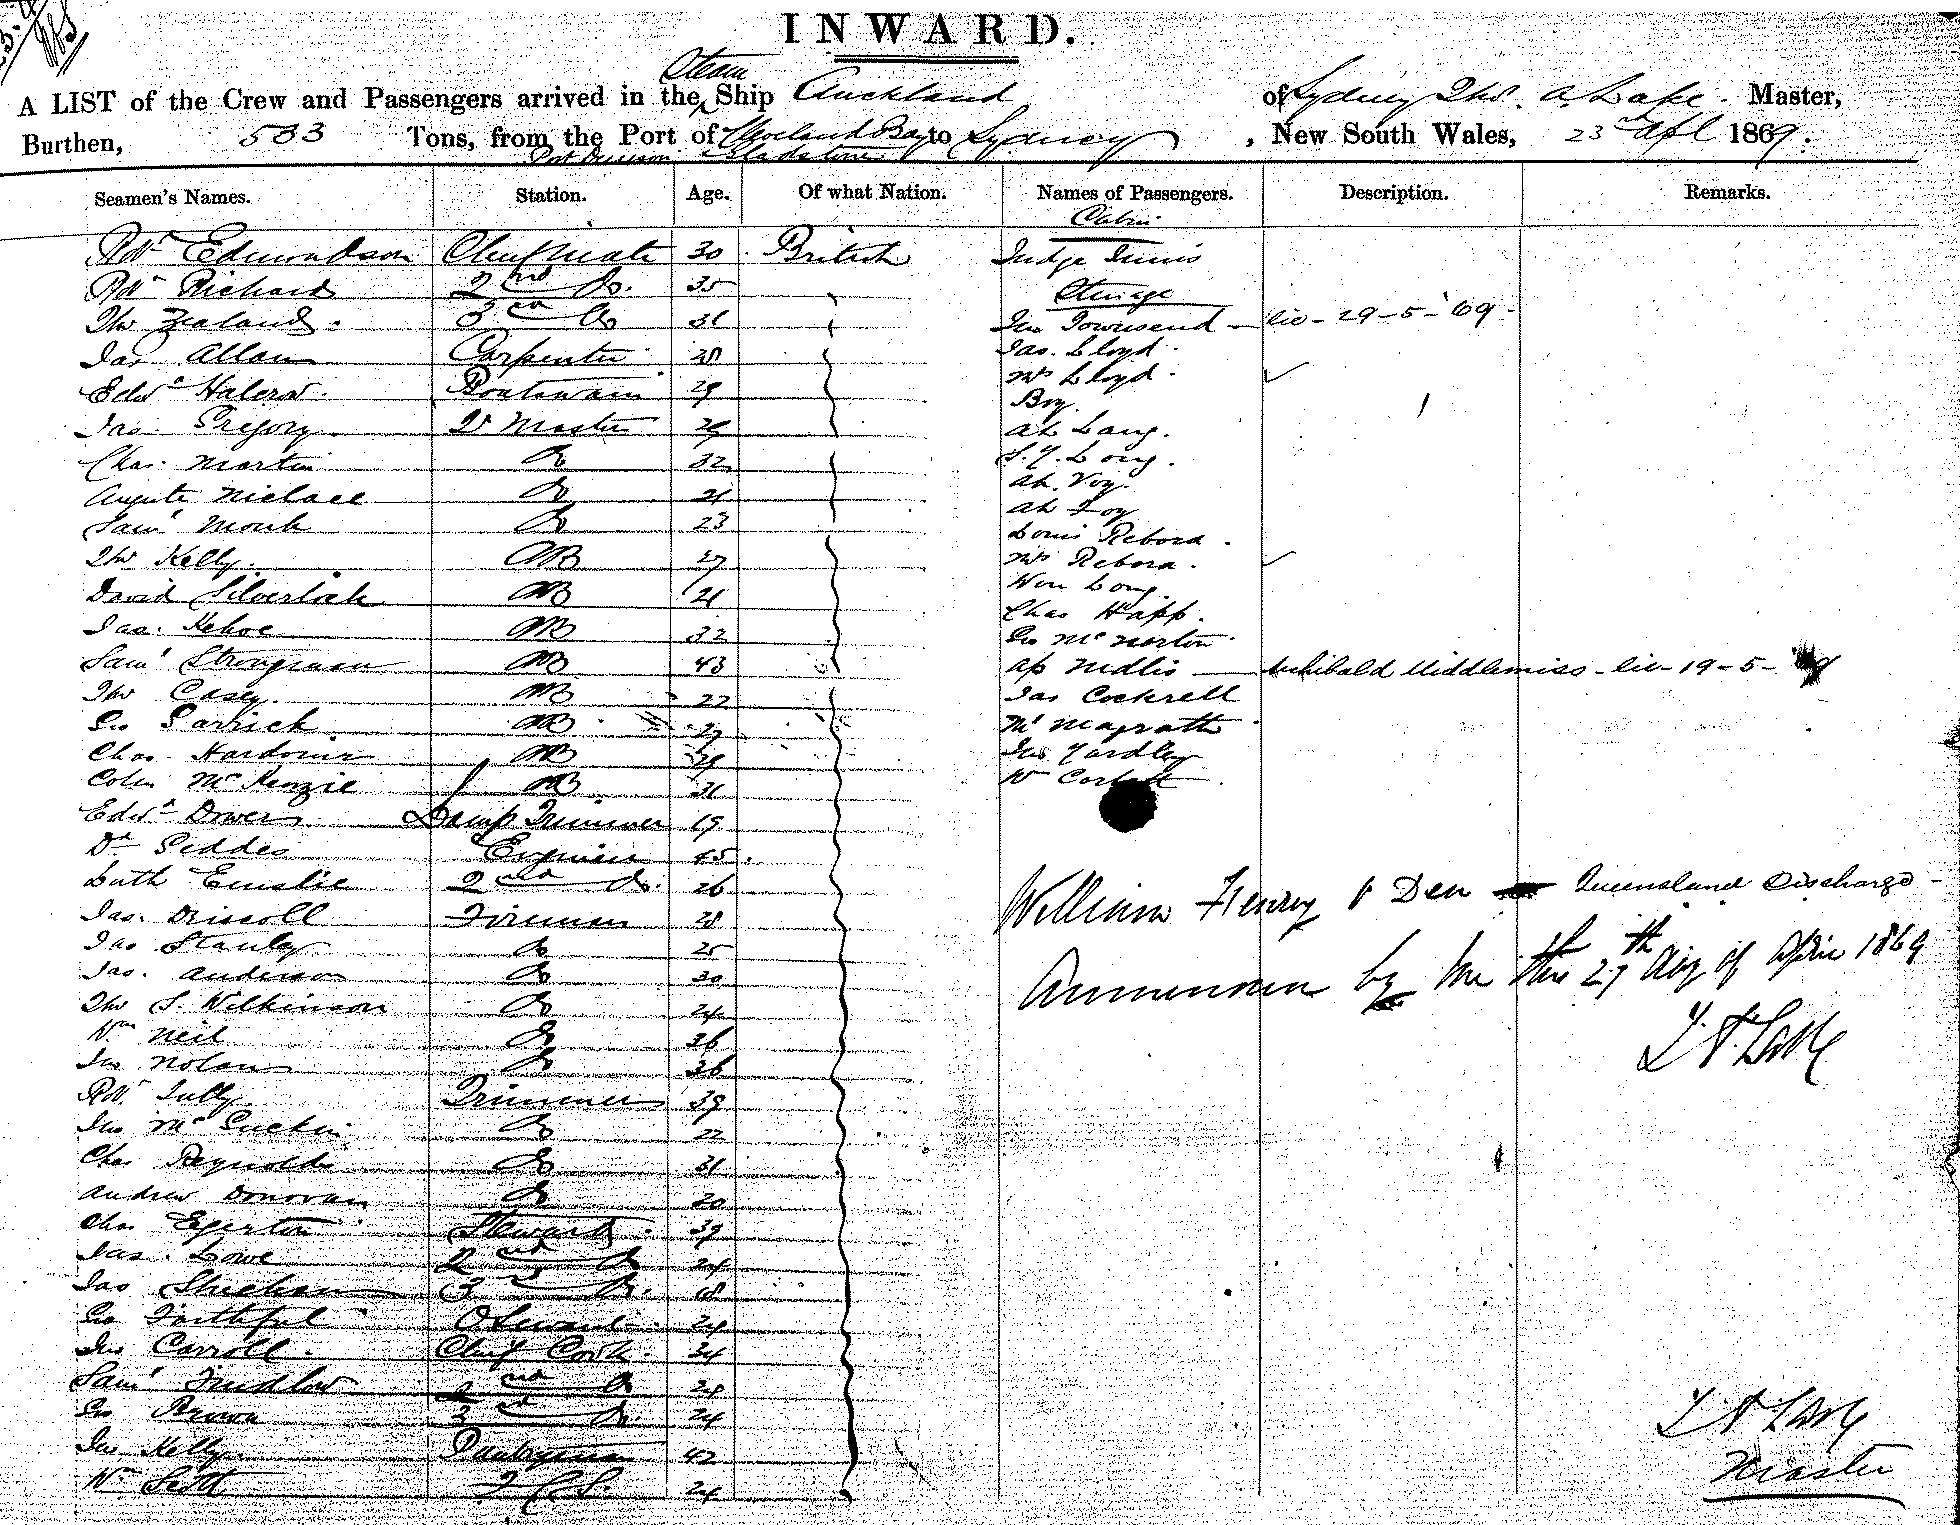 INWARD.
Steam
A LIST of the Crew and Passengers arrived in the Ship Auckland of Sydney Thos. A Lake. Master,
Burthen, 533 Tons, from the Port of Cleveland Bay to Sydney, New South Wales, 23rd Apl 1869.
Port Denison Gladstone
Seamen's Names. Station. Age. Of what Nation. Names of Passengers. Description. Remarks.
Cabin
Robt Edmondson Chief Mate 30 British Judge Innis
Robt Richard 2nd Do. 35
Steerage
Thos Zealand. 3rd Do 31 Jno Townsend
Jas Allan Carpenter 28 Jas. Lloyd
Edwd Halcrow. Boatswain 29 Mrs Lloyd
Boy
Jas. Gregory Qr Master 29 Ah Lang.
Chas. Martin Do 32 S.Y. Long.
Ah. Voy.
Auguste Do 21 Ah Foy
Saml Monk Do 23 Louis Rebora.
Thos Kelly. AB 27 Mrs Rebora.
David Silverlock AB 21 Won Long.
Jas. Kehoe AB 32 Chas Happ.
Geo Mc Norton
Saml Strongman AB 43 Ap Midlis — Archibald Middlemiss - liv - 19-5-
Thos Casey. AB 22 Jas Cockrell
Geo Garrick AB Mr Magrath
Chas AB 29 Jno Yardley
Colin McKenzie AB 31 Wm Corbett
Edwd Dowers Lamp Trimmer 19
Dd Geddes Engineer 45
Luth Emslie 2nd Do. 26
Jas. Driscoll Fireman 28
Jas Stanley Do 25
Jas. Anderson Do 30
Thos S. Wilkinson Do 24
Wm Neil Do 36
Jno Nolan Do 36
Robt Tully Trimmer 39
Jno Mc Do 22
Chas Reynolds Do 31
Andrew Donovan Do 20
Chas Egerton Steward 39
Jas. Lowe 2nd Do 24
Jas Sheehan 3rd Do. 18
Geo Faithful 24
Jno Carroll. Chief Cook. 34
Saml 2nd Do 28
Geo Brown 3rd Do. 24
Jno Kelly Pantryman 42
Wm Scott 24
William Henry Queensland Discharge
by me this 27th day of April 1869
T A Lake
T A Lake
Master